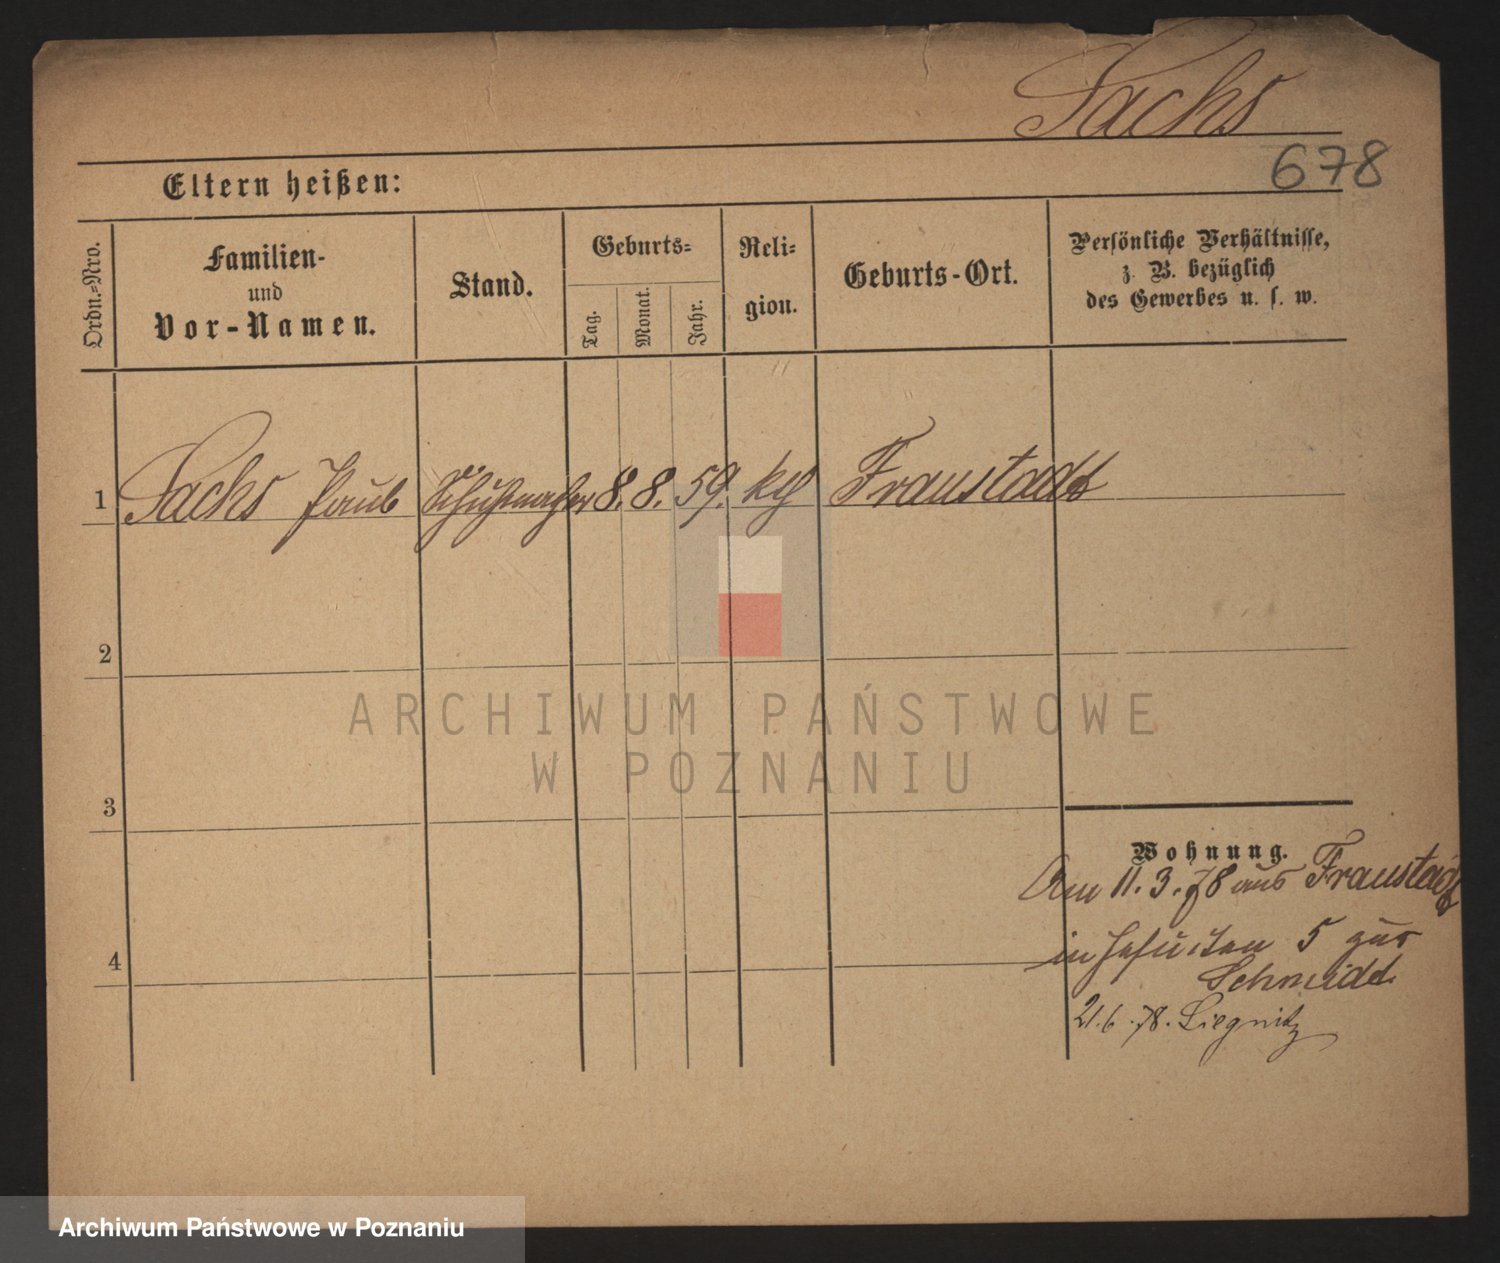 Sachs
678
Eltern heißen:
Ordn.-Nro.
Familien-
und
Vor-Namen.
Stand.
Geburts-
Tag.
Monat.
Jahr.
Reli-
gion.
Geburts-Ort.
Persönliche Verhältnisse,
z. B. bezüglich
des Gewerbes u. s. w.
1 Sachs Paul Schuhmacher 8. 8. 59. kth Fraustadt
2
ARCHIWUM PAŃSTWOWE
W POZNANIU
3
Wohnung.
Am 11.3.78 aus Fraustadt
4
in Jesuiten 5 zur
Schmidt
21.6.78. Liegnitz
Archiwum Państwowe w Poznaniu